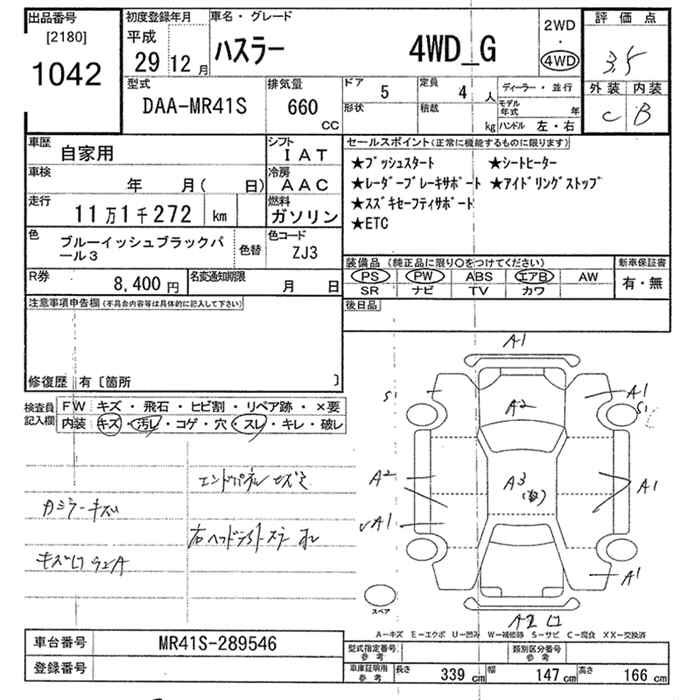 出品番号
[2180]
1042
初度登録年月
平成
29 12 月
車名・グレード
ハスラー 4WD_G
2WD
4WD
評価点
3.5
外装 内装
C B
型式
DAA-MR41S
排気量
660
CC
ドア 5
形状
定員 4 人
積載 kg
ディーラー・並行
モデル年式 年
ハンドル 左・右
車歴
自家用
シフト
IAT
車検
年 月( 日)
冷房
AAC
走行
11万1千272 km
燃料
ガソリン
色
ブルーイッシュブラックパ
ール3
色替
色コード
ZJ3
R券
8,400 円
名変通知期限
月 日
セールスポイント(正常に機能するものに限ります)
★プッシュスタート ★シートヒーター
★レーダーブレーキサポート ★アイドリングストップ
★スズキセーフティサポート
★ETC
装備品(純正品に限り○をつけてください)
PS PW ABS エアB AW
SR ナビ TV カワ
新車保証書
有・無
後日品
注意事項申告欄(不具合内容等は具体的に記入して下さい)
修復歴 有〔箇所 〕
検査員
記入欄
FW キズ・飛石・ヒビ割・リペア跡・×要
内装 キズ・汚レ・コゲ・穴・スレ・キレ・破レ
エンドパネル
カミラーキズ
右ヘッドライト
A1
S1
A1
S1
A2
A2
A3
A1
A1
A1
A2
スペア
A―キズ E―エクボ U―凹み W―補修跡 S―サビ C―腐食 XX―交換済
車台番号
MR41S-289546
登録番号
型式指定番号
参考
類別区分番号
参考
車庫証明用
参考
長さ 339 cm
幅 147 cm
高さ 166 cm